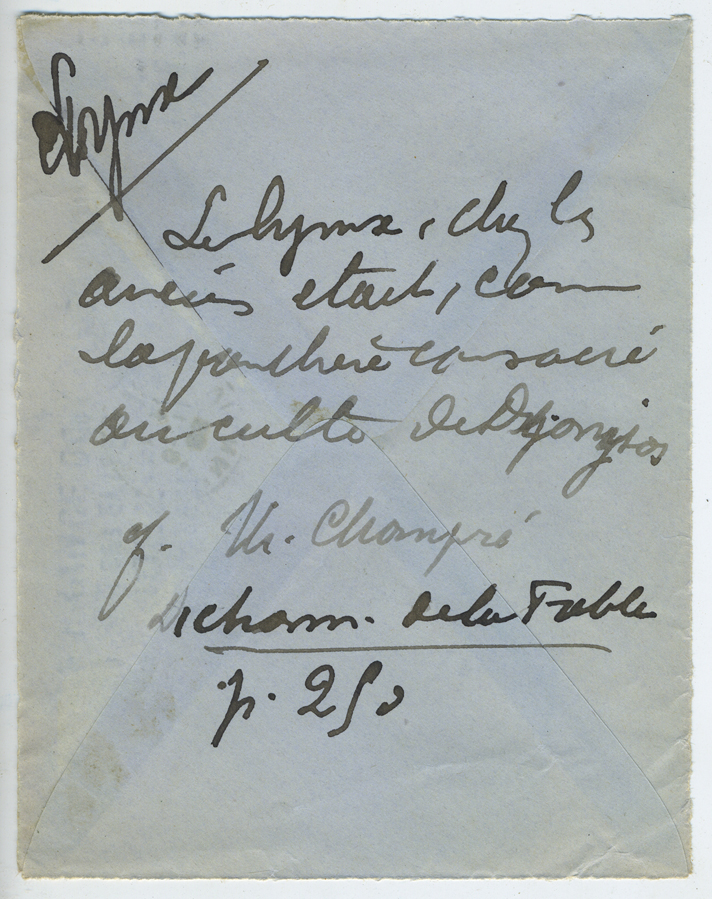 Lynx
Le lynx, chez les
anciens etait, comme
la panthère consacré
au culte de Dionysos
cf. Th. Chompré
Dictionn. de la Fable
p. 250